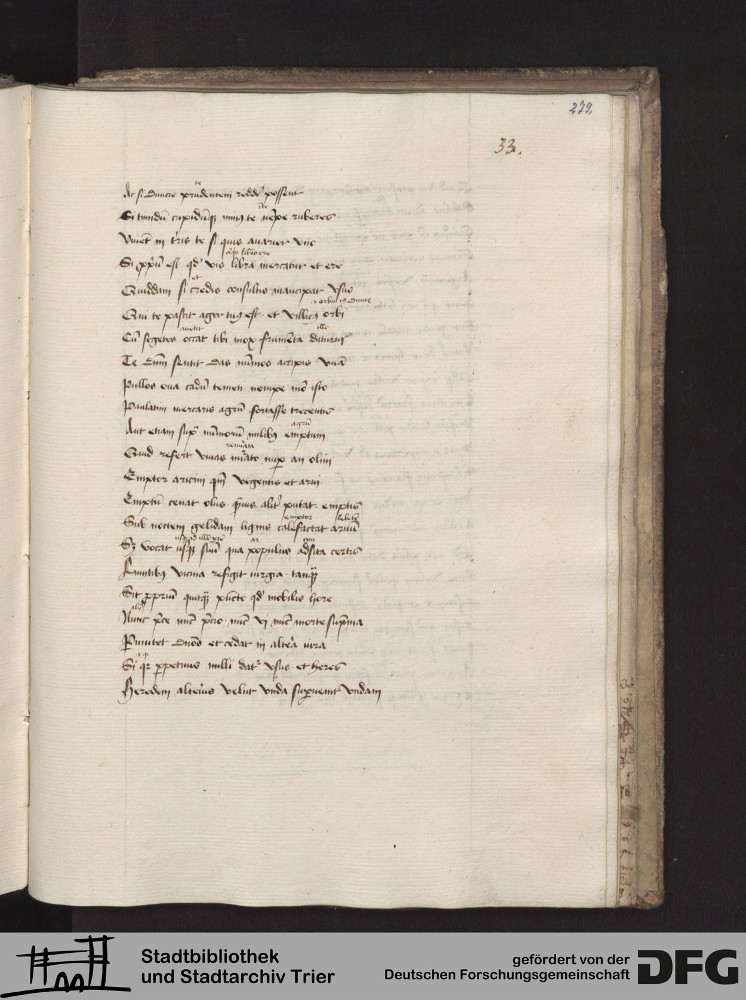 272
33.
Ac si diuicie prudentem reddere possent
Si timidum cupidumque minus te nempe ruberes
Viueret in terris te si quis auarior uno
Si proprium est quod quis libra mercatur et ere
Quiddam si credis consultis mancipat vsus
Qui te pascit ager tuus est et villicus orbi
Cum segetes occat tibi mox frumenta
Te dominum sentit das nummos accipis vuam
Pullos oua cadum temeti nempe modo isto
Paulatim mercaris agrum fortasse trecentis
Aut etiam supra nummorum milibus emptum
Quid refert viuas numerato nuper an olim
Emptor aricini quondam vegentis et arui
Emptum cenat olus quamuis aliter putat emptis
Sub noctem gelidam lignis calefactat
Sed vocat usque suum qua populus adsita certis
Limitibus vicina refigit iurgia tamquam
Sit proprium quitquam puncto quod mobilis hore
Nunc prece nunc precio nunc vi nunc morte suprema
Permutet dominos et cedat in altera iura
Si quia perpetuus nulli datur vsus et heres
Heredem alterius velut vnda superuenit vndam
Stadtbibliothek
und Stadtarchiv Trier
gefördert von der
Deutschen Forschungsgemeinschaft
DFG